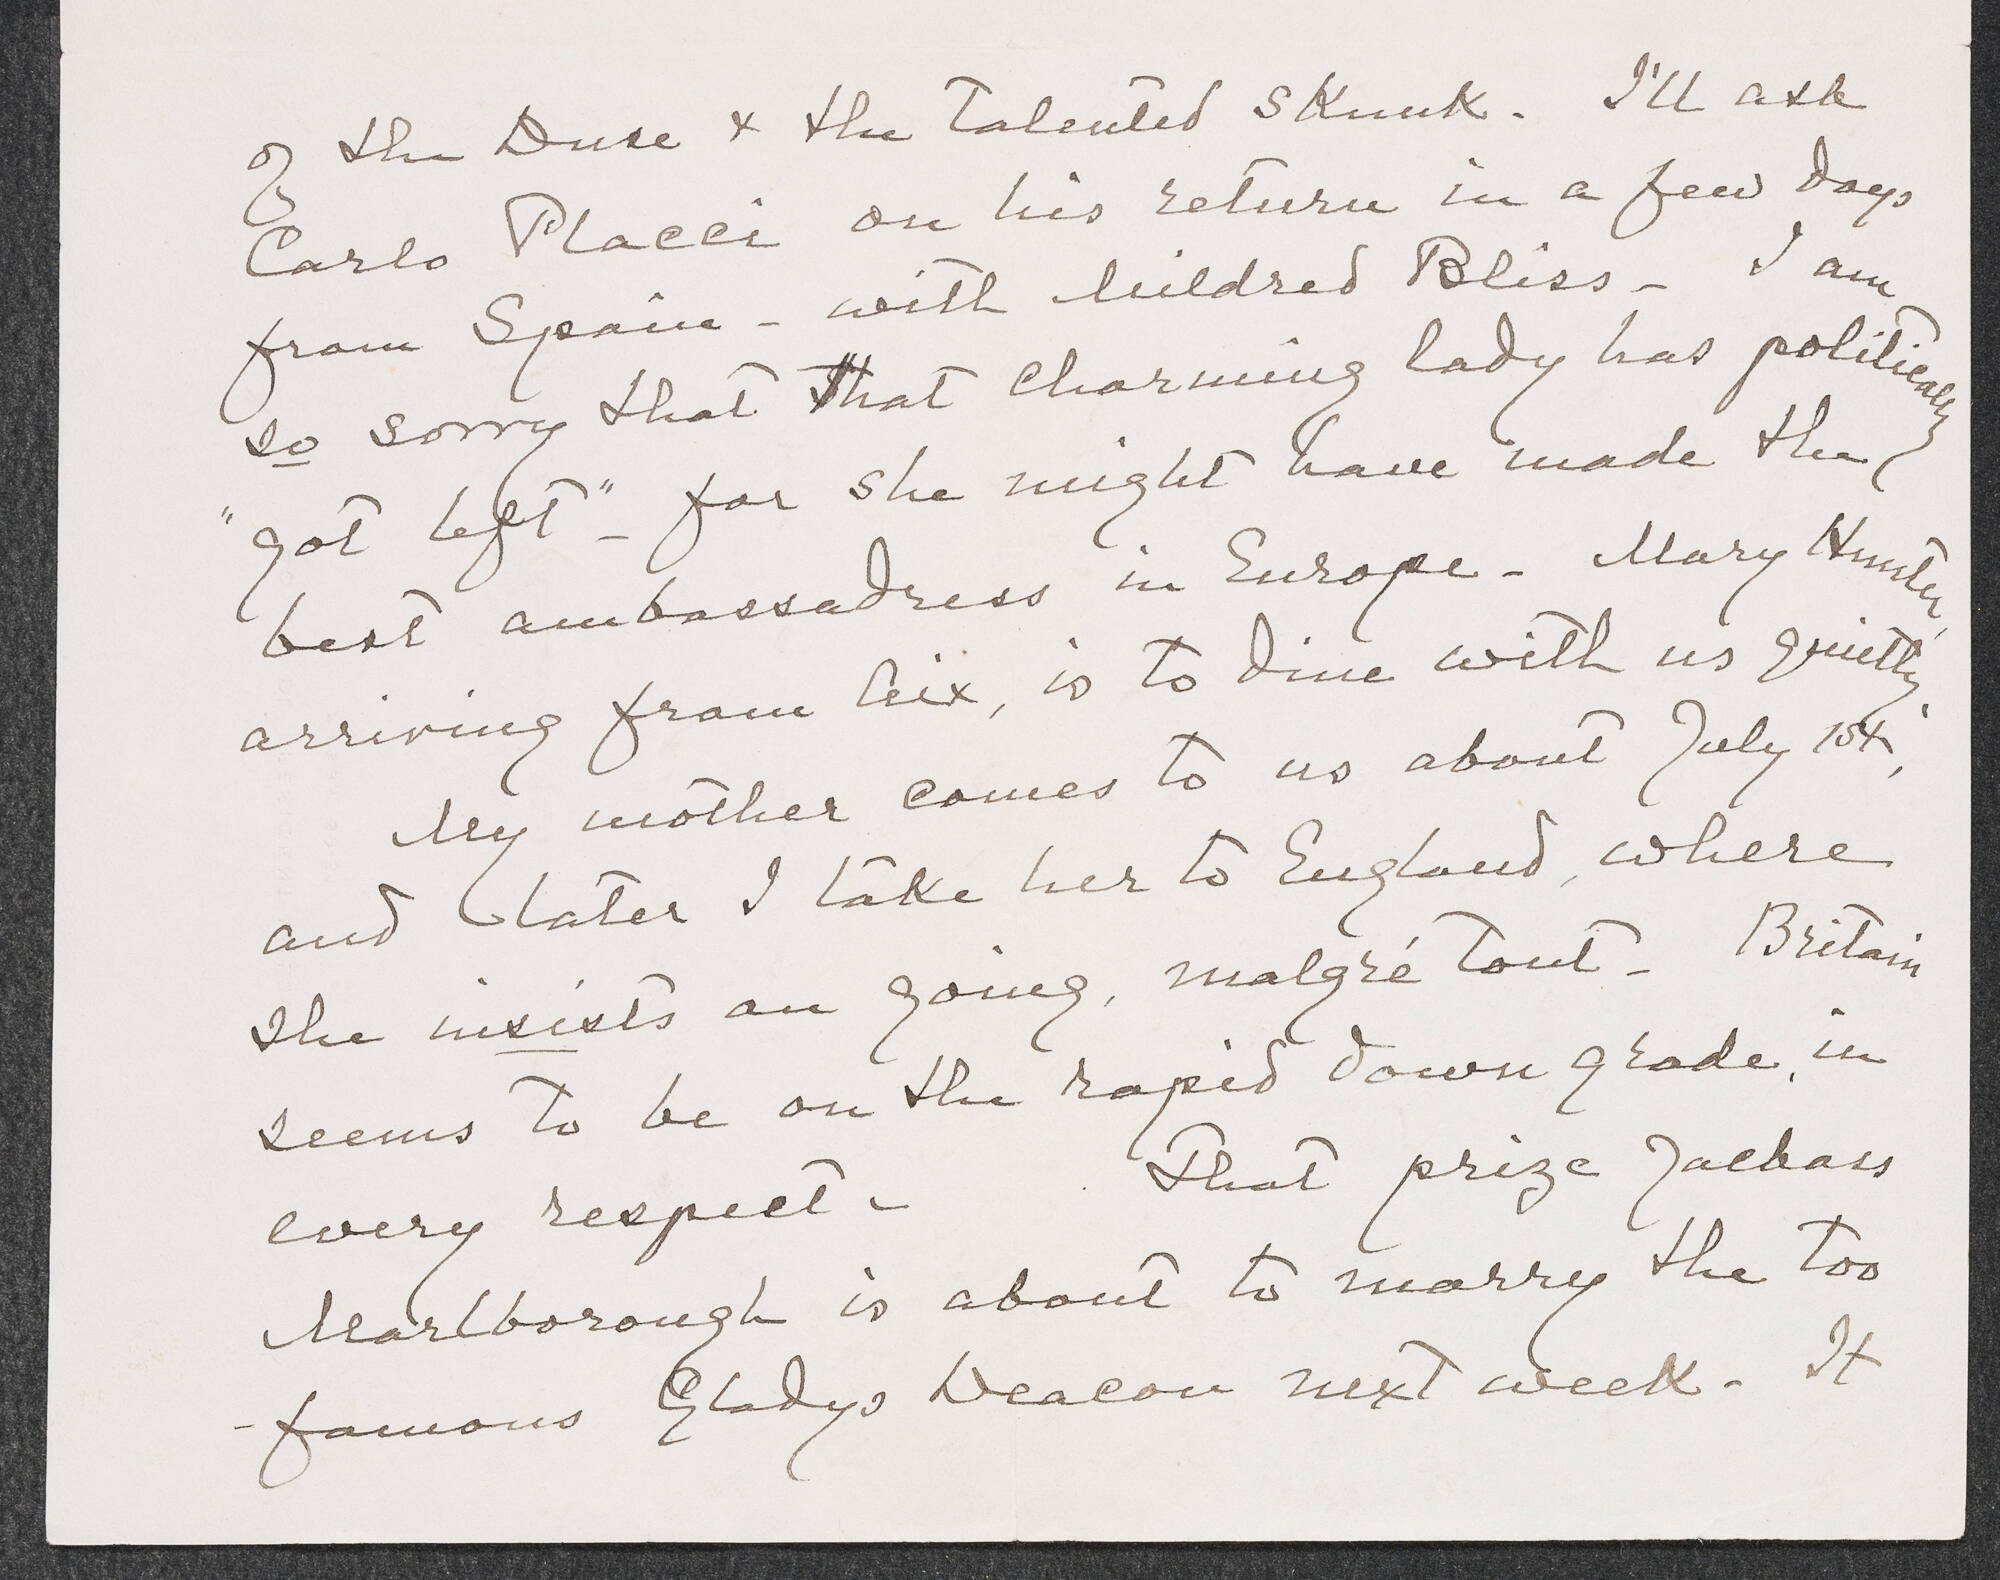 of the Duse & the talented skunk. I'll ask
Carlo Placci on his return in a few days
from Spain - with Mildred Bliss - I am
so sorry that that charming lady has politically
"got left" - for she might have made the
best ambassadress in Europe - Mary Hunter,
arriving from Aix, is to dine with us quietly.
My mother comes to us about July 1st,
and later I take her to England, where
she insists on going, malgré tout - Britain
seems to be on the rapid down grade, in
every respect - That prize Jackass
Marlborough is about to marry the too
-famous Gladys Deacon next week. It